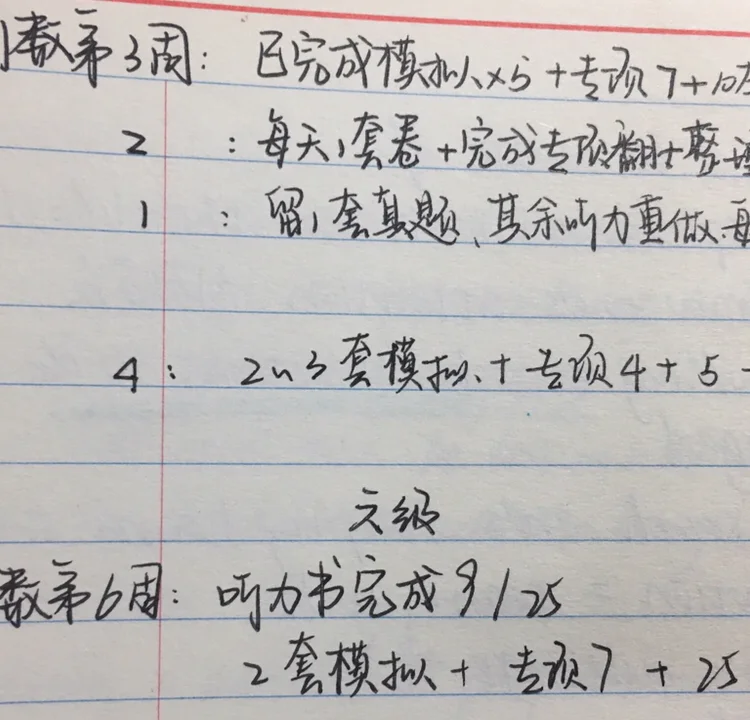 倒数第3周：已完成模拟×5+专项7+10
2：每天1套卷+完成专项翻译整理
1：留1套真题、其余听力重做、每
4：2~3套模拟、+专项4+5
六级
数第6周：听力书完成9/25
2套模拟+专项7+25